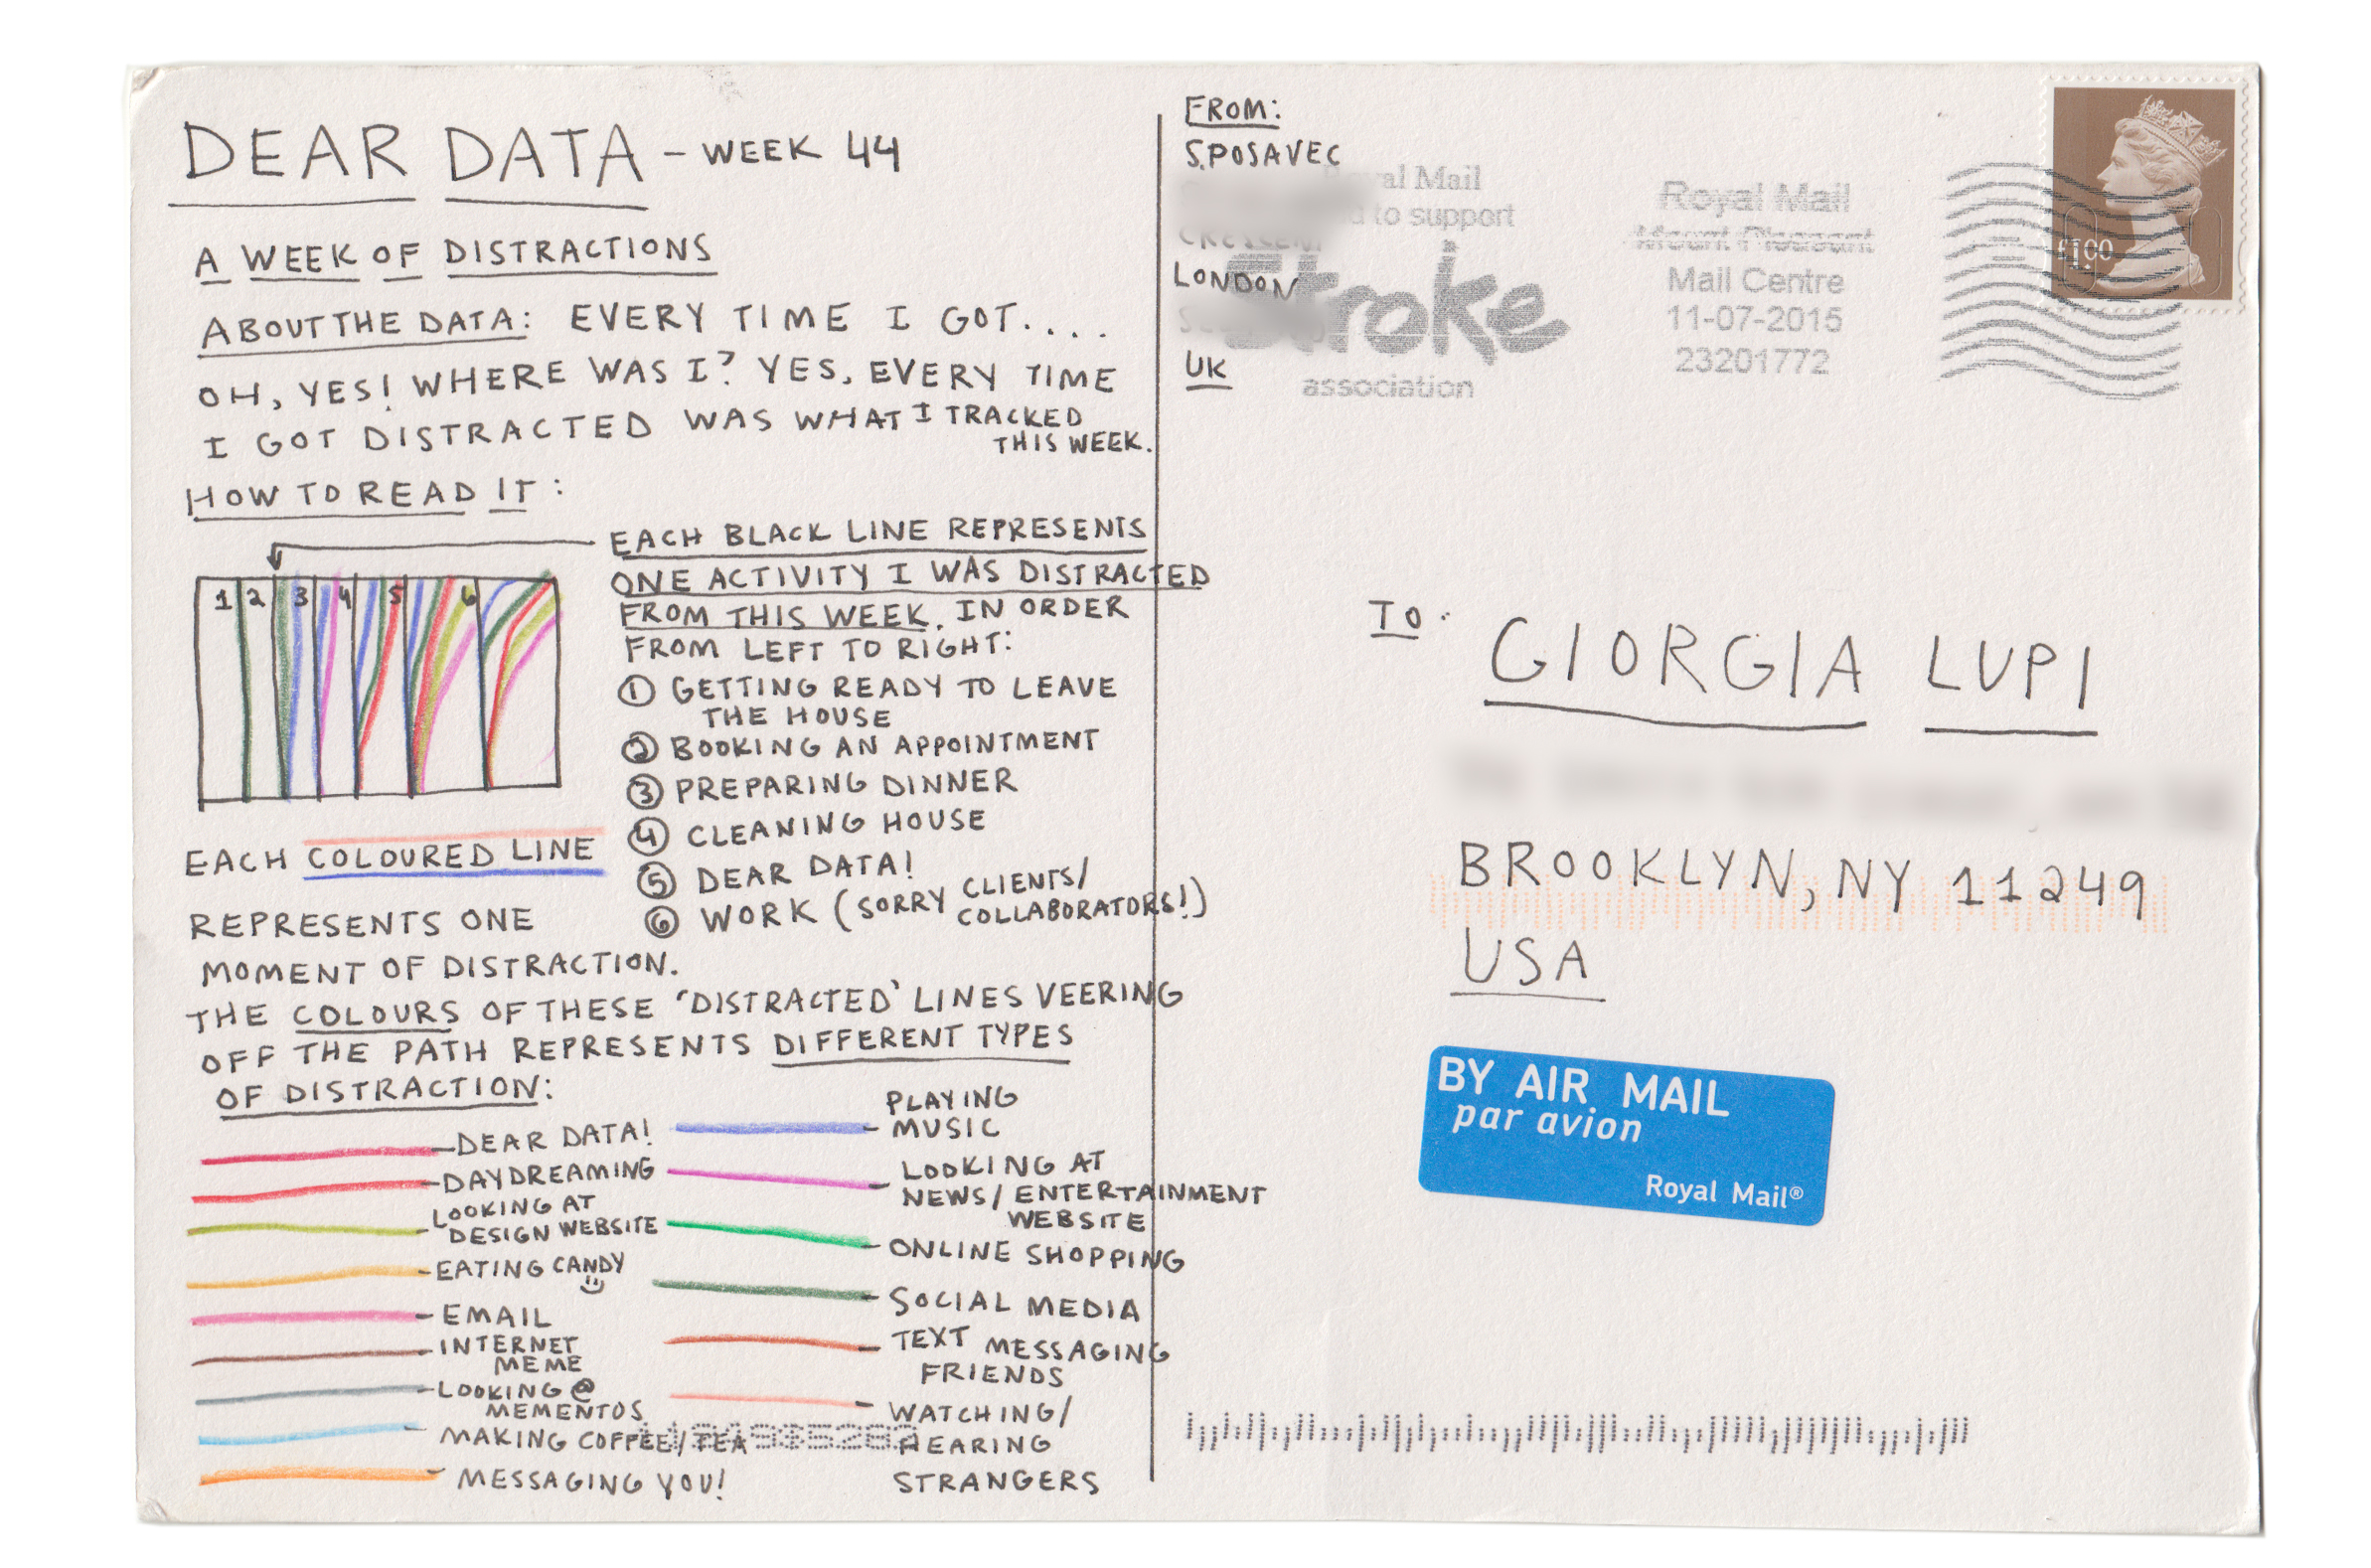 DEAR DATA - WEEK 44
A WEEK OF DISTRACTIONS
ABOUT THE DATA: EVERY TIME I GOT....
OH, YES! WHERE WAS I? YES, EVERY TIME
I GOT DISTRACTED WAS WHAT I TRACKED
THIS WEEK.
HOW TO READ IT:
EACH BLACK LINE REPRESENTS
ONE ACTIVITY I WAS DISTRACTED
FROM THIS WEEK. IN ORDER
FROM LEFT TO RIGHT:
1 2 3 4 5 6
① GETTING READY TO LEAVE
THE HOUSE
② BOOKING AN APPOINTMENT
③ PREPARING DINNER
④ CLEANING HOUSE
⑤ DEAR DATA!
⑥ WORK (SORRY CLIENTS/
COLLABORATORS!)
EACH COLOURED LINE
REPRESENTS ONE
MOMENT OF DISTRACTION.
THE COLOURS OF THESE 'DISTRACTED' LINES VEERING
OFF THE PATH REPRESENTS DIFFERENT TYPES
OF DISTRACTION:
DEAR DATA!
DAYDREAMING
LOOKING AT
DESIGN WEBSITE
EATING CANDY
EMAIL
INTERNET
MEME
LOOKING @
MEMENTOS
MAKING COFFEE/TEA
MESSAGING YOU!
PLAYING
MUSIC
LOOKING AT
NEWS/ENTERTAINMENT
WEBSITE
ONLINE SHOPPING
SOCIAL MEDIA
TEXT MESSAGING
FRIENDS
WATCHING/
HEARING
STRANGERS
FROM:
S.POSAVEC
CRESCENT
LONDON
UK
Royal Mail
to support
Stroke
association
Royal Mail
Mount Pleasant
Mail Centre
11-07-2015
23201772
£1.00
TO:
GIORGIA LUPI
BROOKLYN, NY 11249
USA
BY AIR MAIL
par avion
Royal Mail®